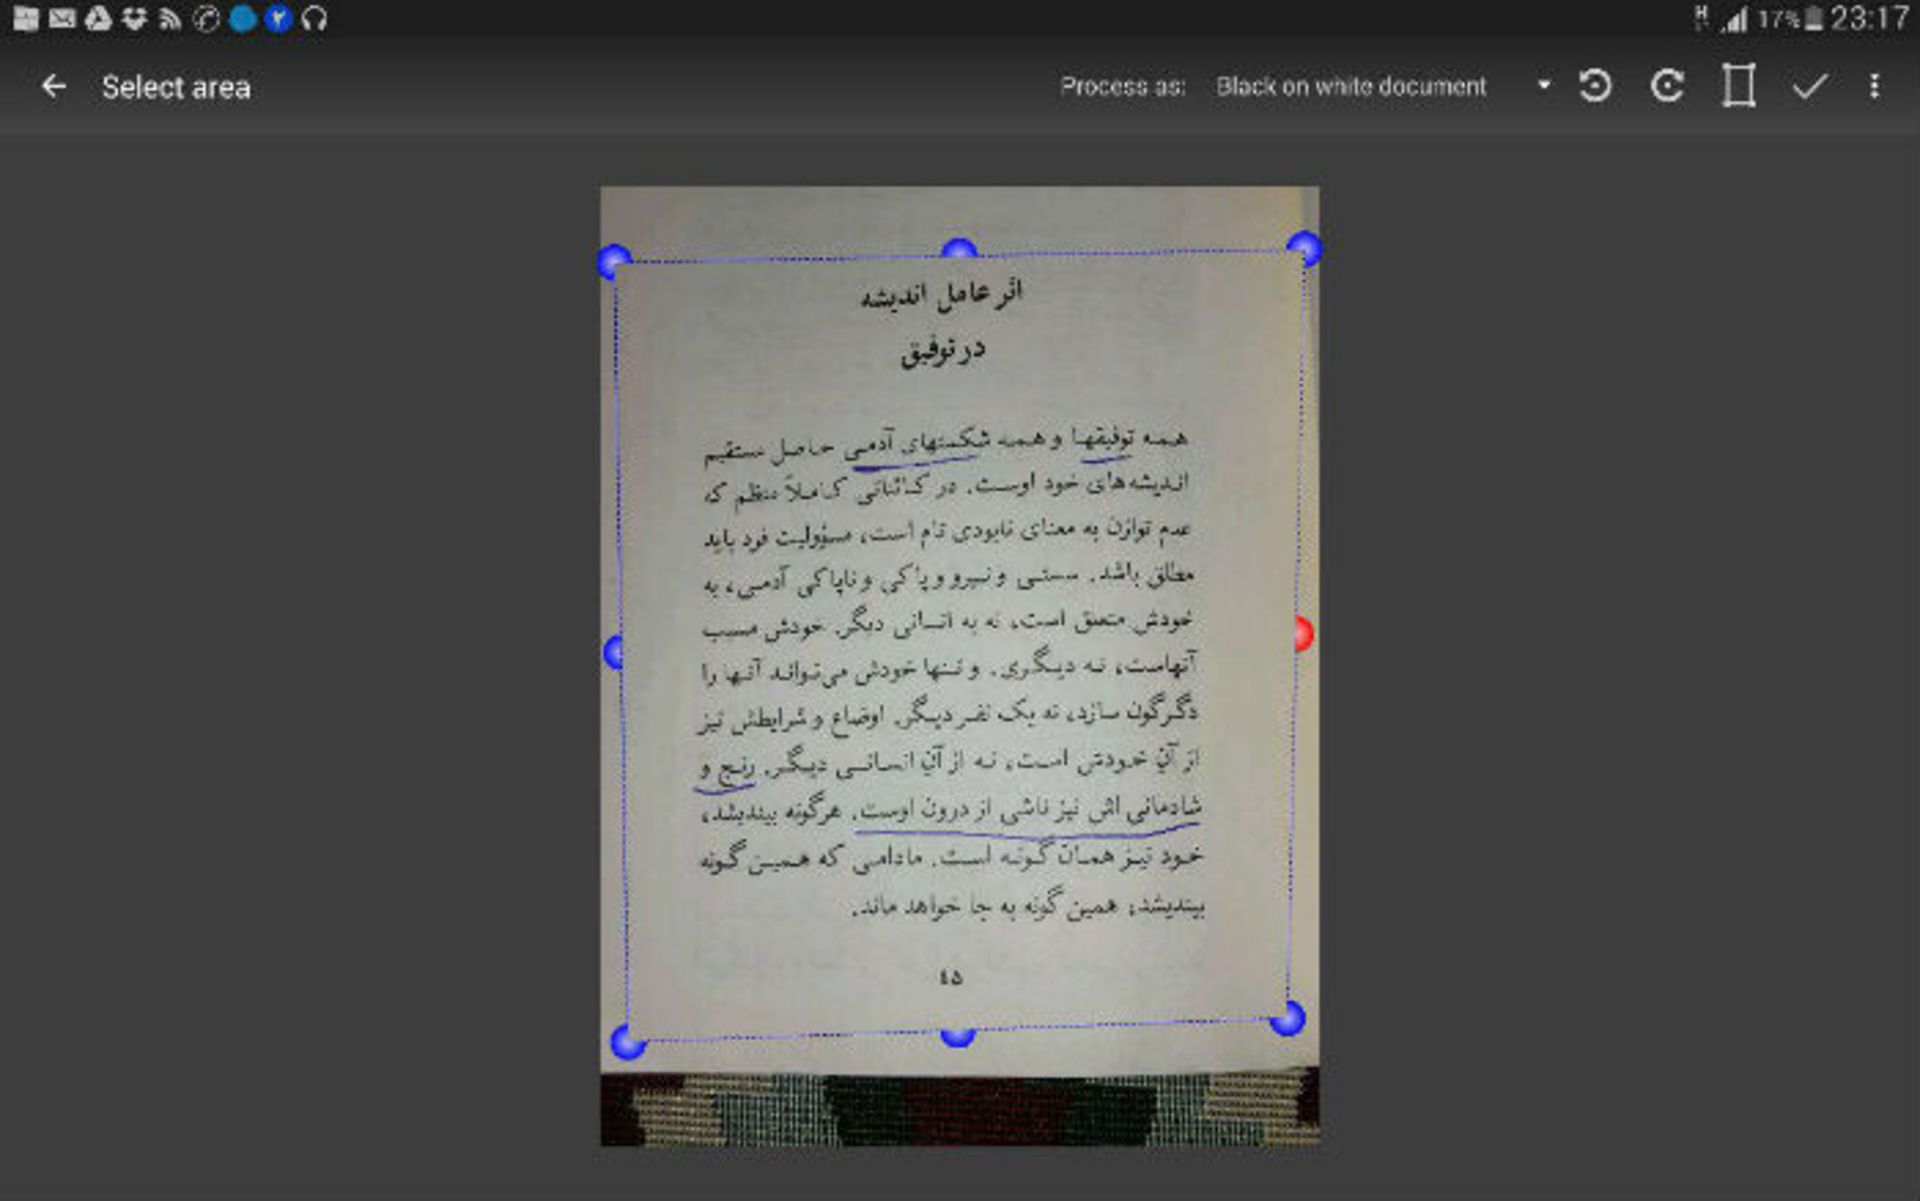 17% 23:17
Select area
Process as: Black on white document
اثر عامل اندیشه
در توفیق
همه توفیقها و همه شکستهای آدمی حاصل مستقیم
اندیشه‌های خود اوست. در کائناتی کاملاً منظم که
عدم توازن به معنای نابودی تام است، مسؤولیت فرد باید
مطلق باشد. سستی و نیرو و پاکی و ناپاکی آدمی، به
خودش متعلق است، نه به انسانی دیگر. خودش مسبب
آنهاست، نه دیگری. و تنها خودش می‌تواند آنها را
دگرگون سازد، نه یک نفر دیگر. اوضاع و شرایطش نیز
از آنِ خودش است، نه از آنِ انسانی دیگر. رنج و
شادمانی اش نیز ناشی از درون اوست. هرگونه بیندیشد،
خود نیز همان گونه است. مادامی که همین گونه
بیندیشد، همین گونه به جا خواهد ماند.
٤۵